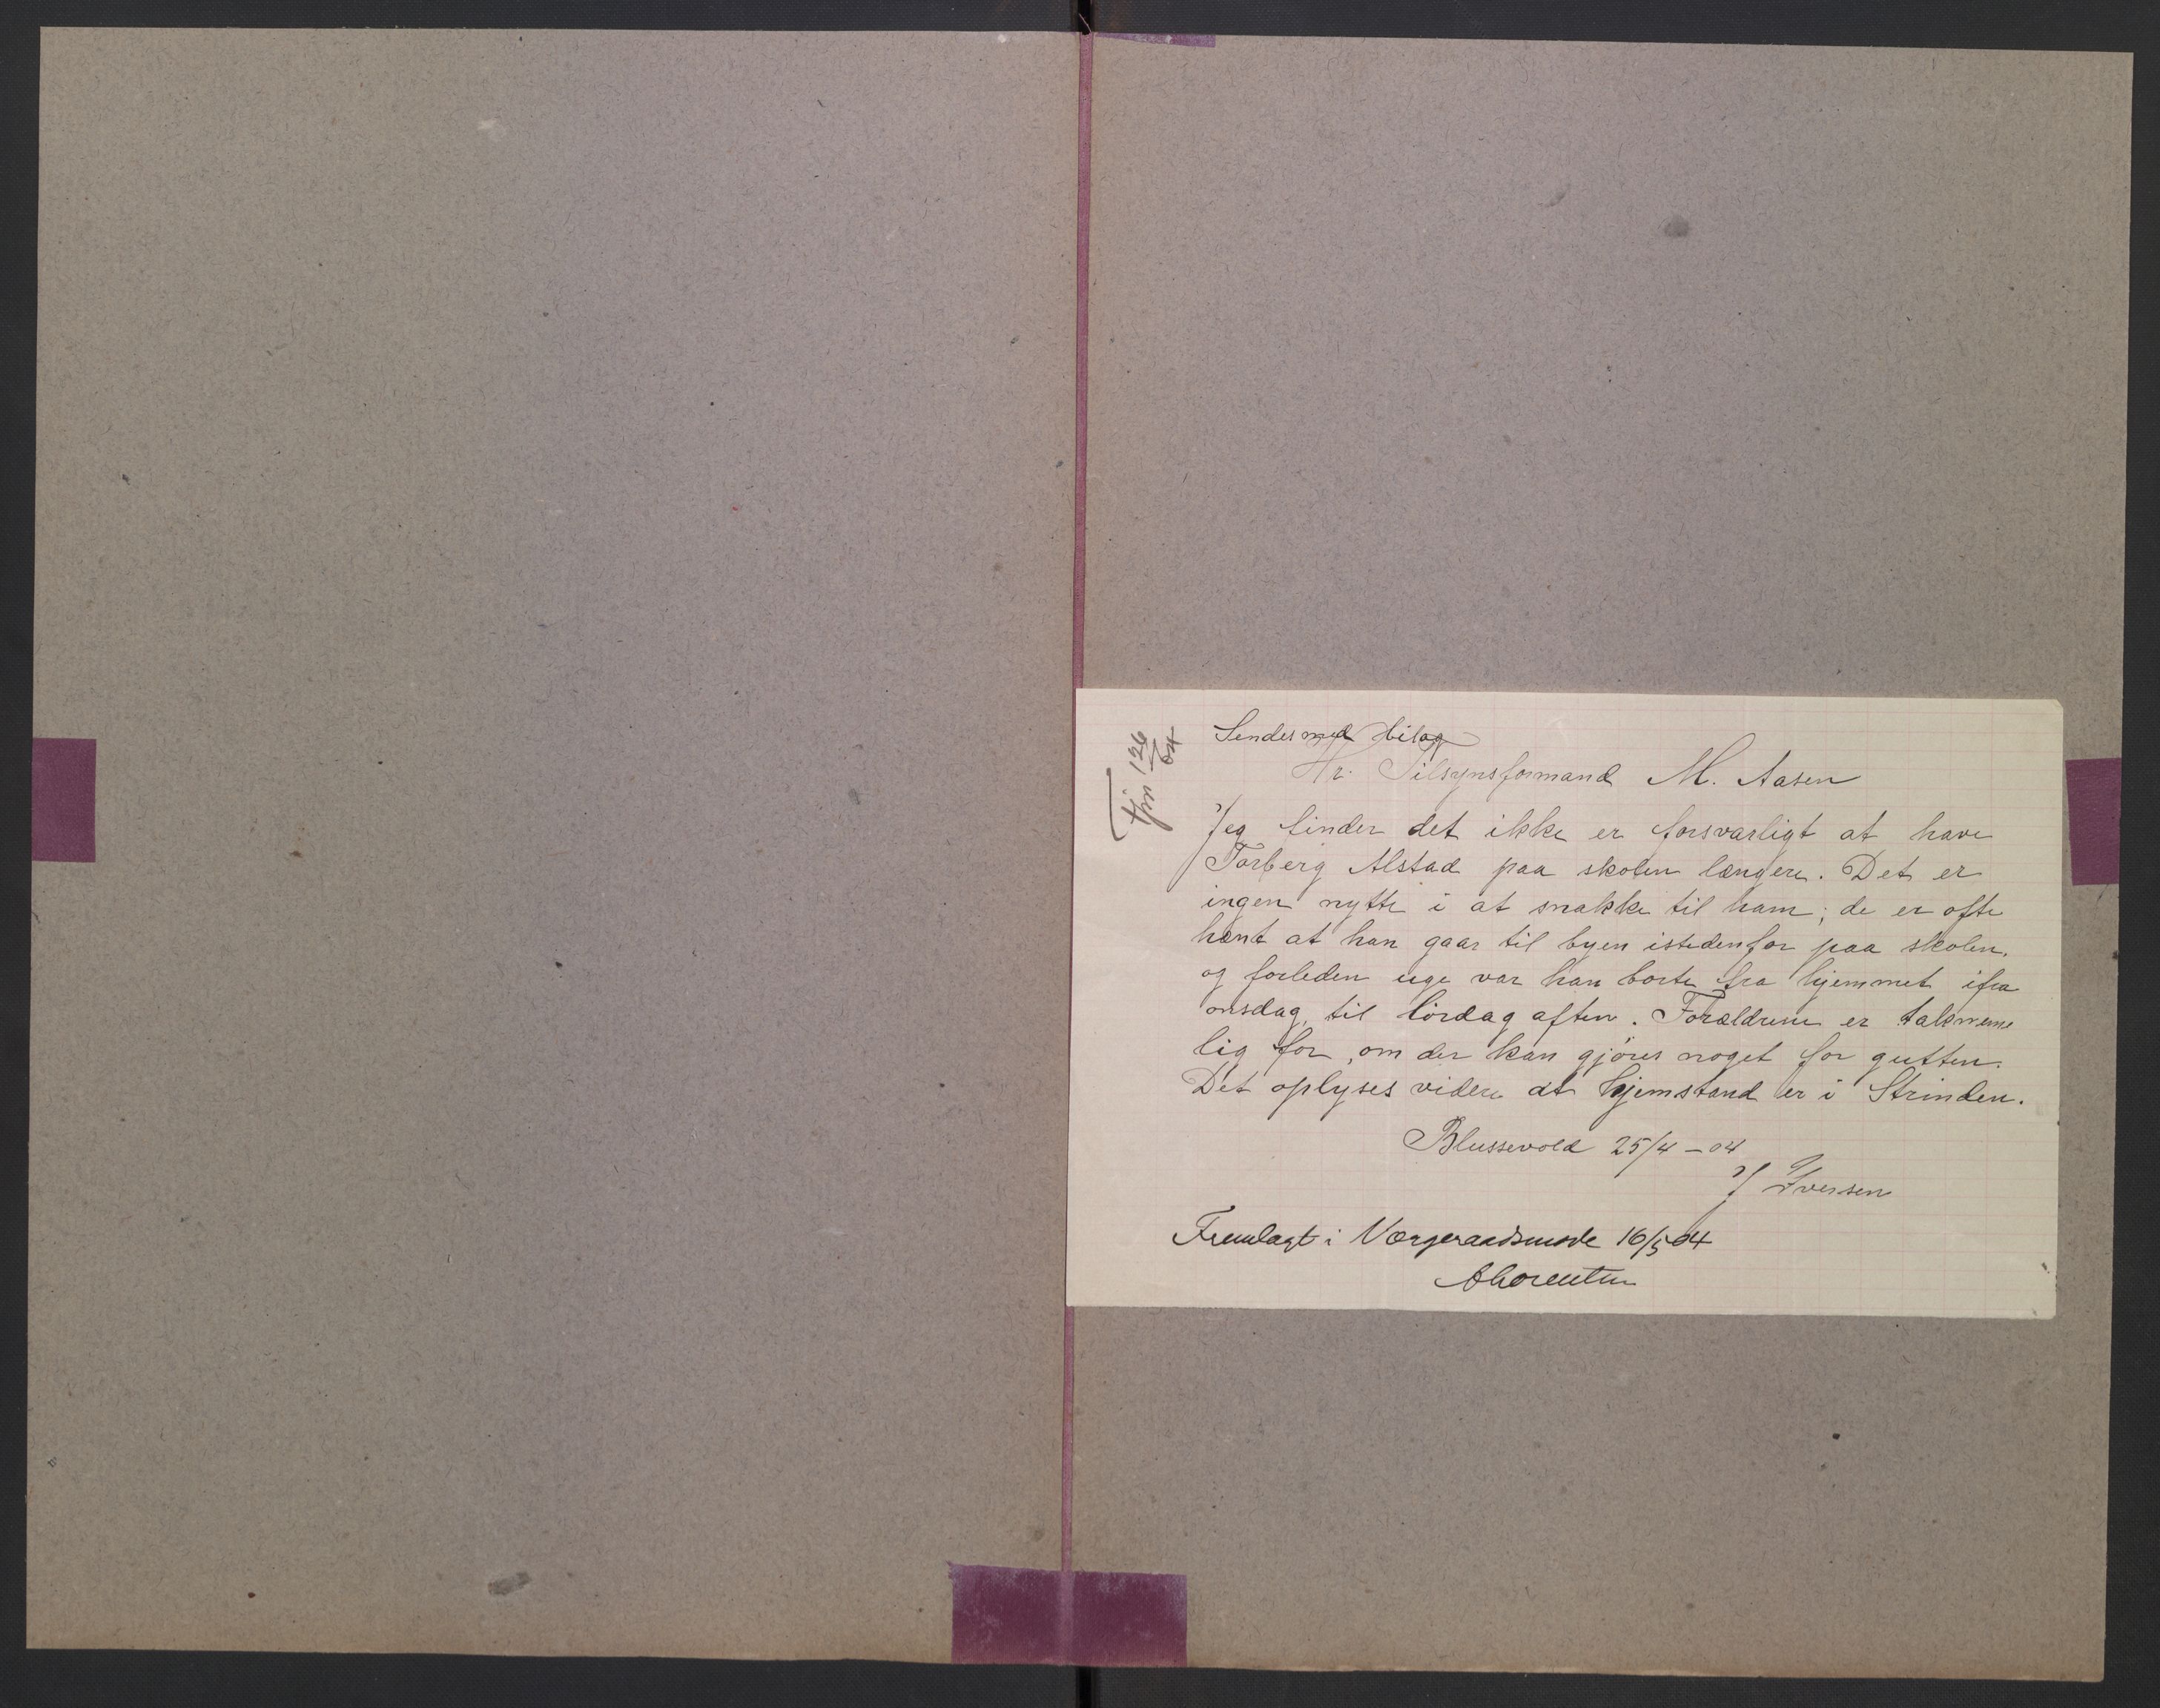 Jnr 126/04
Sendes med bilag
Hr. Tilsynsformand M. Aasen
Jeg finder det ikke er forsvarligt at have
Torberg Alstad paa skolen længere. Det er
ingen nytte i at snakke til ham; de er ofte
hent at han gaar til byen istedenfor paa skolen,
og forleden uge var han borte fra hjemmet ifra
onsdag til lördag aften. Forældrene er takneme
lig for, om der kan gjöres noget for gutten.
Det oplyses videre at hjemstand er i Strinden.
Blussevold 25/4 - 04
J Iversen
Fremlagt i Værgeraadsmöde 16/5 04